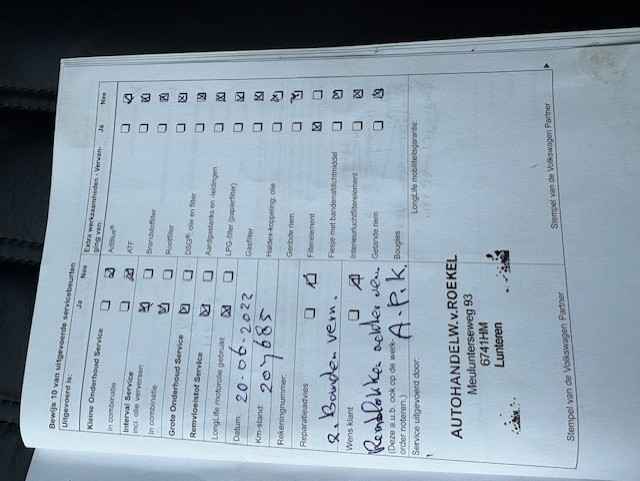 Bewijs 10 van uitgevoerde servicebeurten
Uitgevoerd is:
Ja Nee
Kleine Onderhoud Service
In combinatie
Interval Service
incl. olie verversen
In combinatie
Grote Onderhoud Service
Remvloeistof Service
LongLife motorolie gebruikt
Datum: 20-06-2022
Km-stand: 207685
Rekeningnummer:
Reparatieadvies
2 Banden vern.
Wens klant
Remblokken achter ver
(Deze a.u.b. ook op de werk-
order noteren.) A.P.K.
Service uitgevoerd door:
AUTOHANDEL W. v. ROEKEL
Meulunterseweg 93
6741HM
Lunteren
Stempel van de Volkswagen Partner
Extra werkzaamheden - Vervan-
ging van:
Ja Nee
AdBlue®
ATF
Brandstoffilter
Roetfilter
DSG®, olie en filter
Aardgastanks en -leidingen
LPG-filter (papierfilter)
Gasfilter
Haldex-koppeling: olie
Geribde riem
Filterelement
Flesje met bandenafdichtmiddel
Interieurluchtfilterelement
Getande riem
Bougies
LongLife mobiliteitsgarantie
Stempel van de Volkswagen Partner